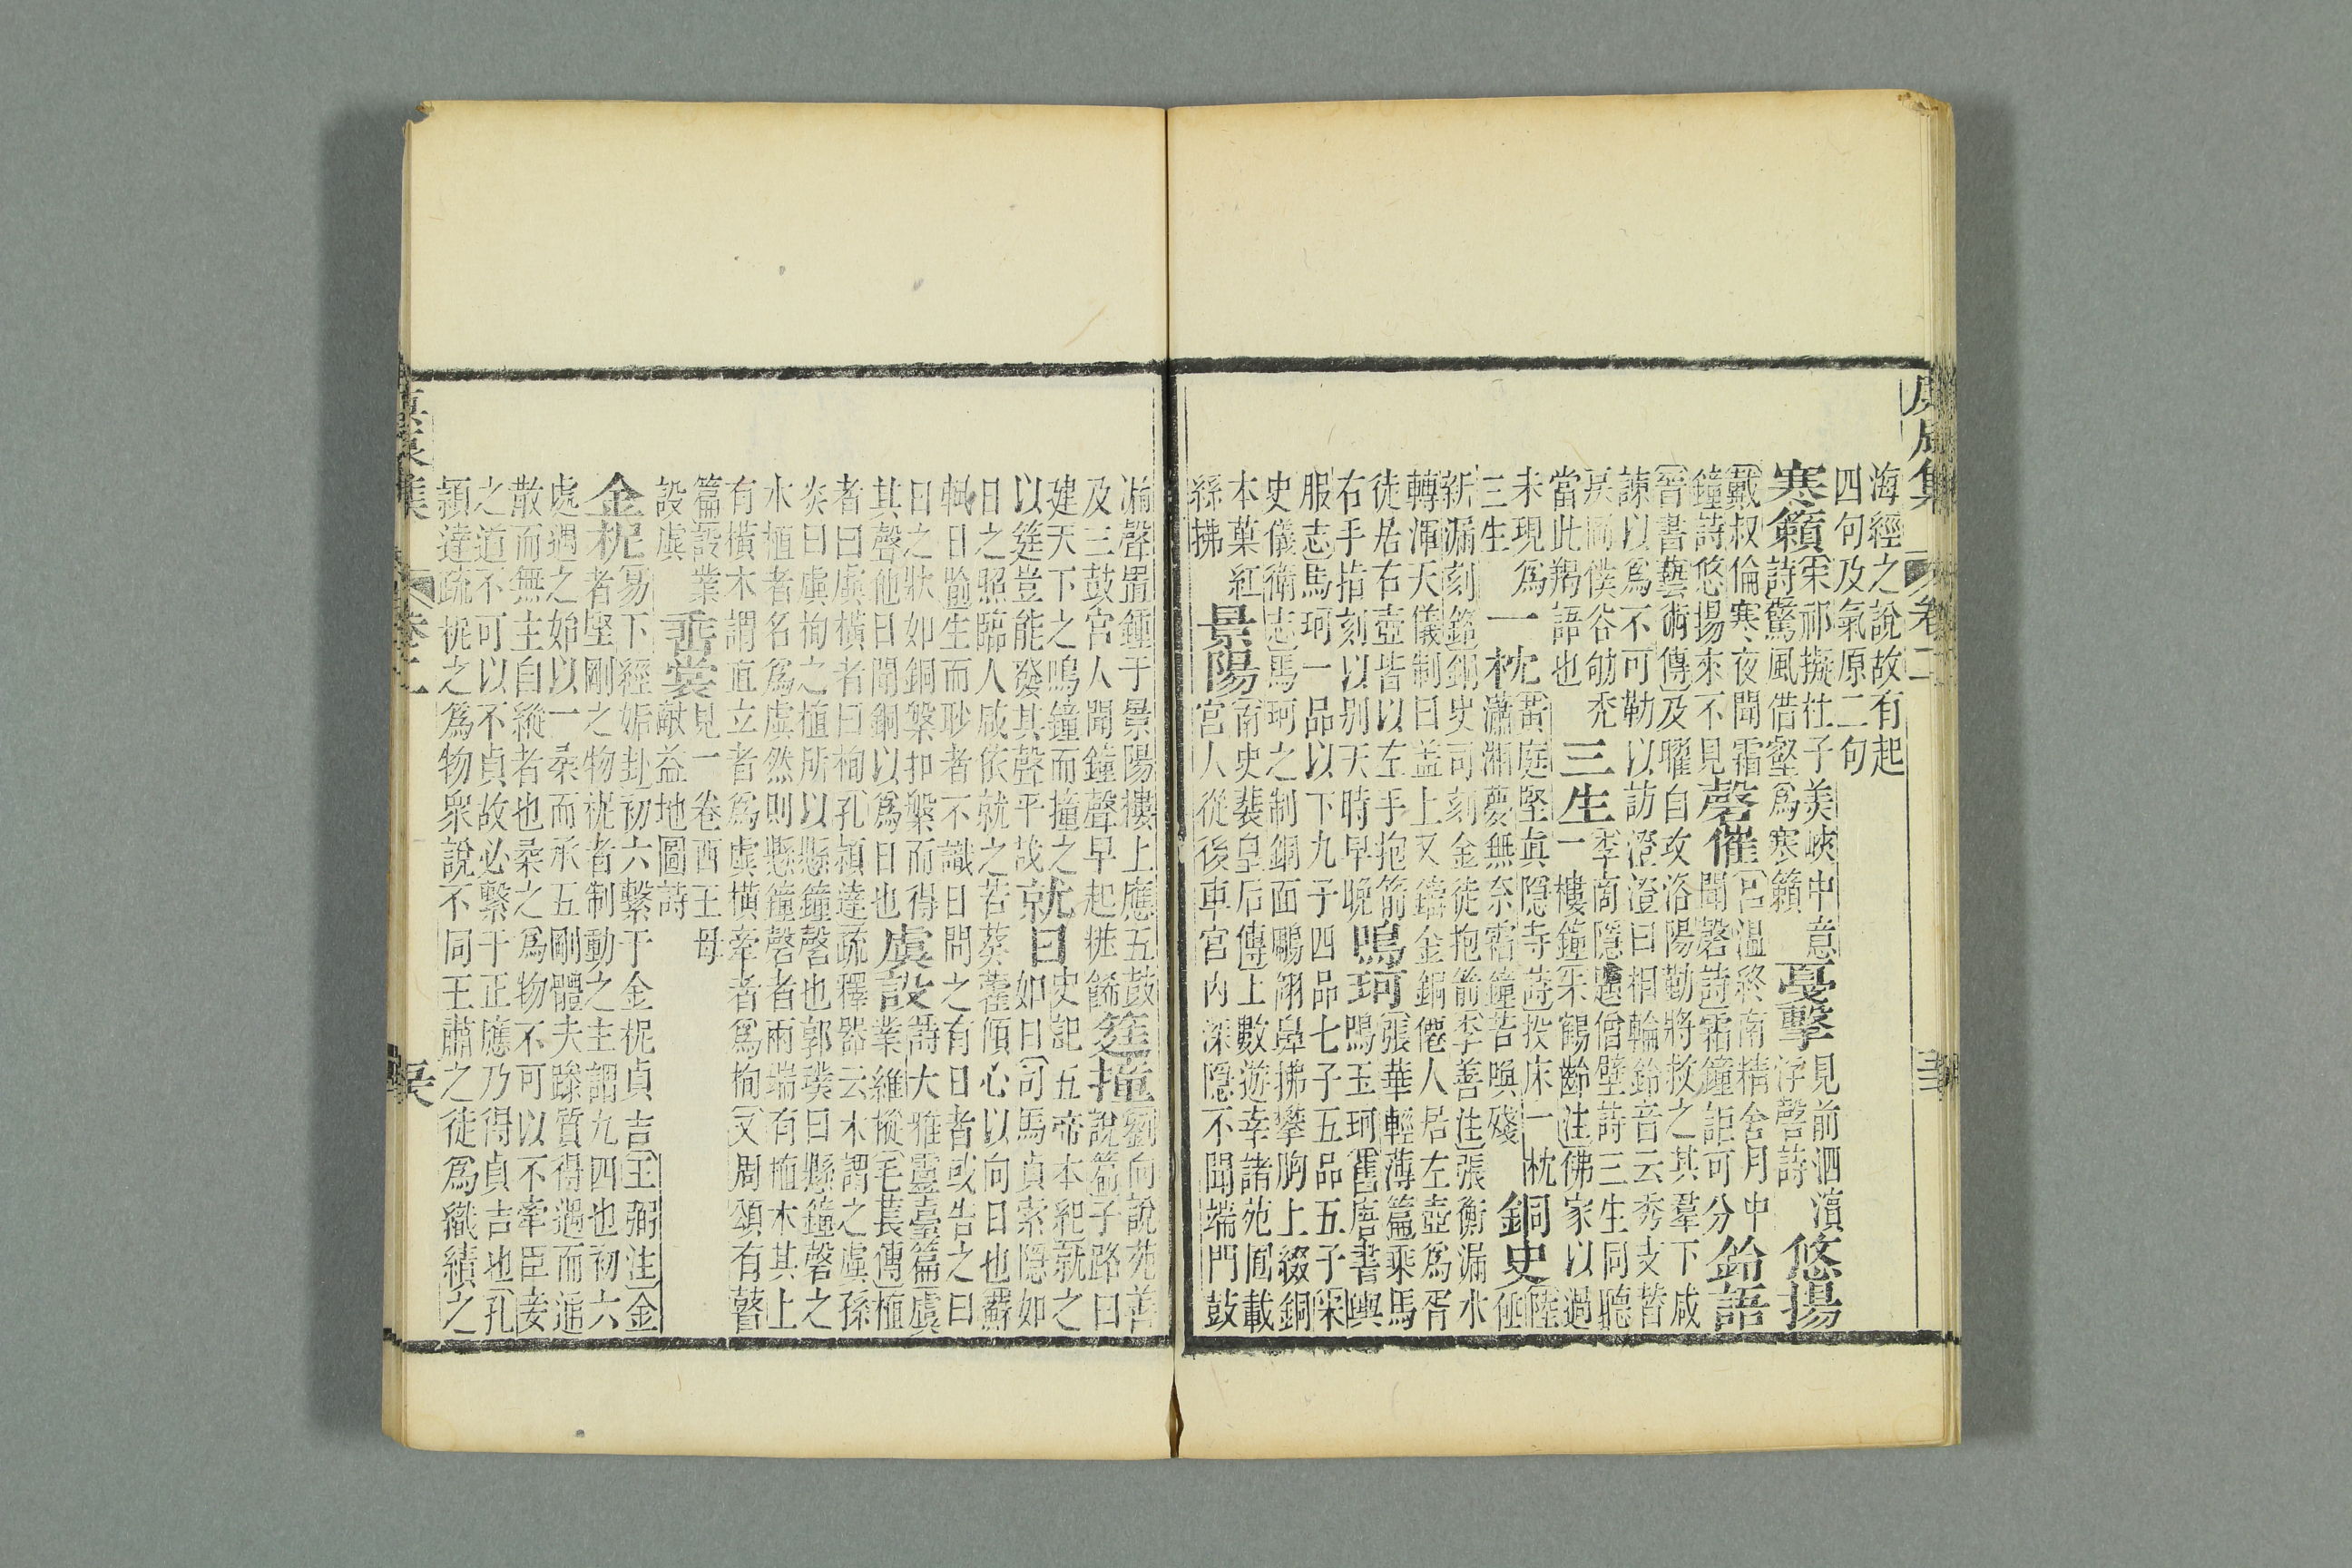 卷二
海經之說故有起
四句及氣原二句
寒籟
宋祁擬杜子美峽中意
詩驚風借壑爲寒籟
戞擊
見前泗濱
浮磬詩
悠揚
戴叔倫寒夜聞霜
鐘詩悠揚來不見
磬催
呂溫終南精舍月中
聞磬詩霜鐘詎可分
鈴語
晉書藝術傳及曜自攻洛陽勒將救之其羣下咸
諫以爲不可勒以訪澄澄曰相輪鈴音云秀支替
戾岡僕谷劬禿
當此羯語也
三生
李商隱題僧壁詩三生同聽
一樓鐘朱鶴齡注佛家以過
未現爲
三生
一枕
黃庭堅眞隱寺詩投床一枕
瀟湘夢無奈霜鐘苦喚殘
銅史
陸
倕
新漏刻銘銅史司刻金徒抱箭李善注張衡漏水
轉渾天儀制曰蓋上又鑄金銅僊人居左壺爲胥
徒居右壺皆以左手抱箭
右手指刻以別天時早晚
鳴珂
張華輕薄篇乘馬
鳴玉珂舊唐書輿
服志馬珂一品以下九子四品七子五品五子宋
史儀衛志馬珂之制銅面鵰翎鼻拂攀胸上綴銅
本菓紅
緜拂
景陽
南史裴皇后傳上數遊幸諸苑囿載
宮人從後車宮內深隱不聞端門鼓
漏聲置鍾于景陽樓上應五鼓
及三鼓宮人聞鐘聲早起粧餙
筳撞
劉向說苑善
說篇子路曰
建天下之鳴鐘而撞之
以筳豈能發其聲乎哉
就日
史記五帝本紀就之
如日司馬貞索隱如
日之照臨人咸依就之若葵藿傾心以向日也蘇
軾日喻生而眇者不識日問之有日者或告之曰
日之狀如銅槃扣槃而得
其聲他日聞銅以爲日也
虡設
詩大雅靈臺篇虡
業維樅毛萇傳植
者曰虡橫者曰栒孔穎達疏釋器云木謂之虡孫
炎曰虡栒之植所以懸鐘磬也郭璞曰懸鐘磬之
木植者名爲虡然則懸鐘磬者兩端有植木其上
有橫木謂直立者爲虡橫牽者爲栒又周頌有瞽
篇設業
設虡
垂裳
見一卷西王母
獻益地圖詩
金柅
易下經姤卦初六繫于金柅貞吉王弼注金
者堅剛之物柅者制動之主謂九四也初六
處遇之始以一柔而承五剛體夫躁質得遇而通
散而無主自縱者也柔之爲物不可以不牽臣妾
之道不可以不貞故必繫于正應乃得貞吉也孔
穎達疏柅之爲物衆說不同王肅之徒爲織績之